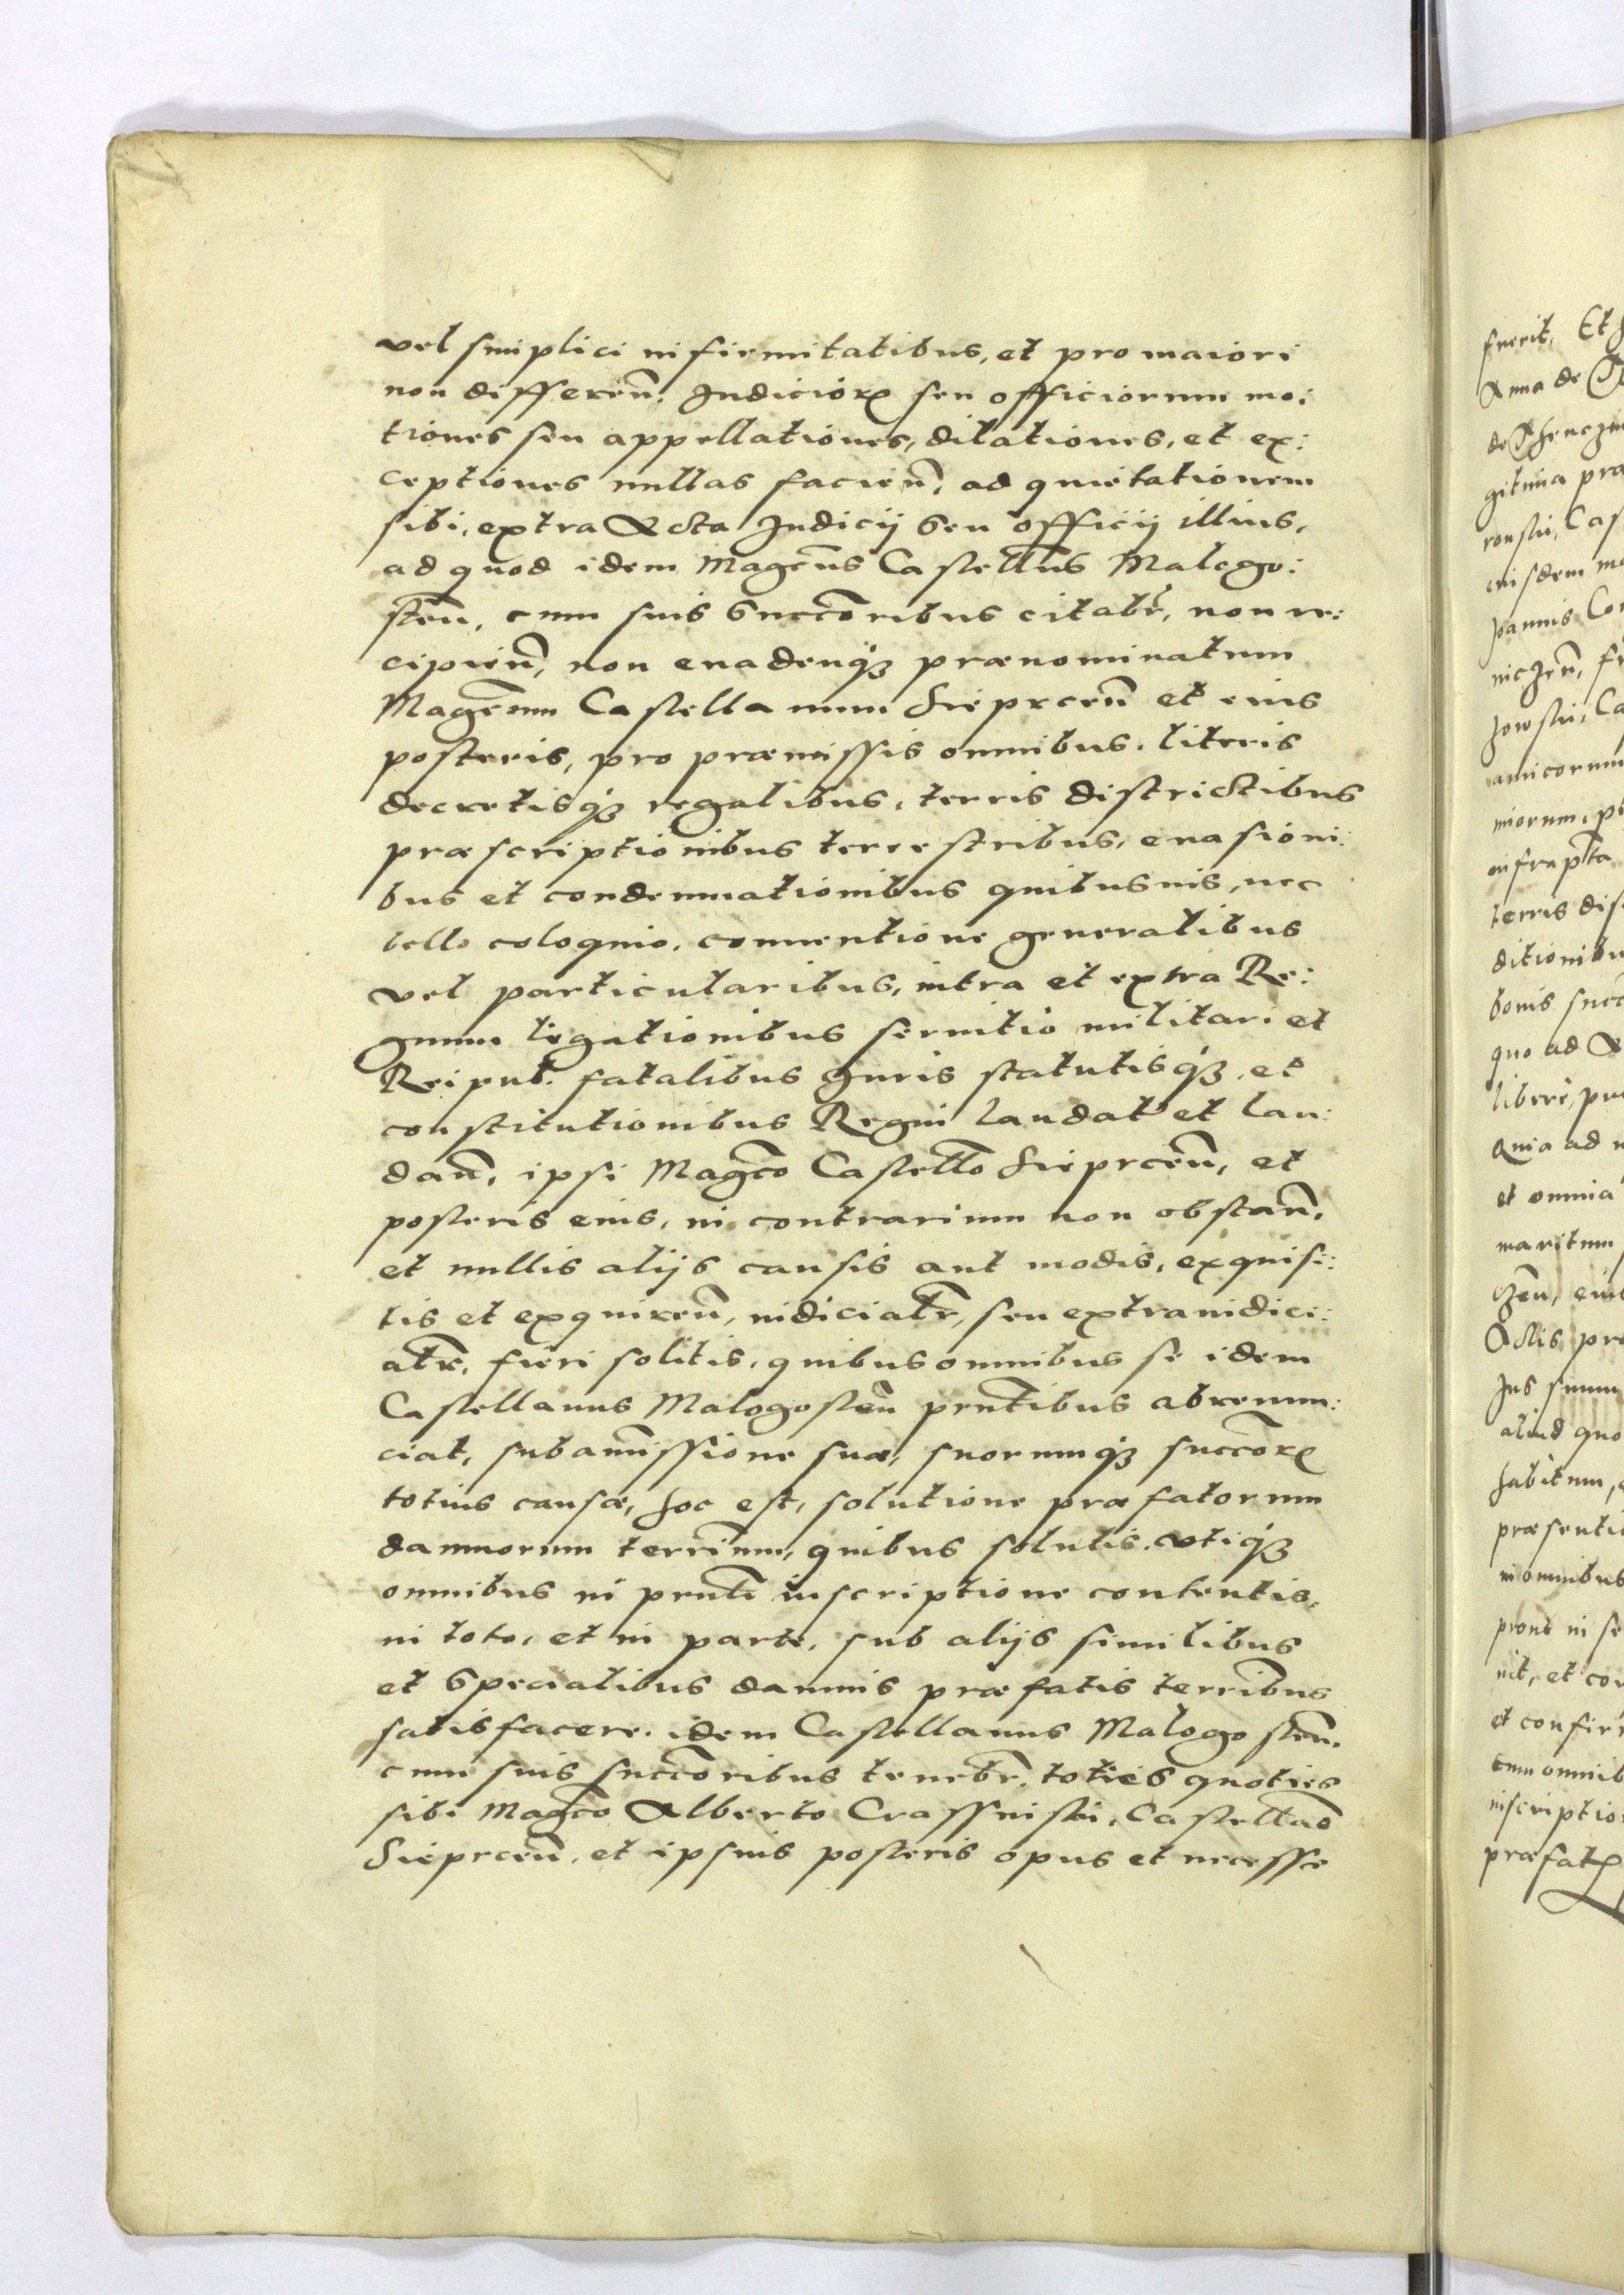 vel simplici infirmitatibus, et pro maiori
non differeñ. Iudiciorꝝ seu officiorum mo:
tiones seu appellationes, dilationes, et ex:
ceptiones nullas facieñ, ad quietationem
sibi, extra Acta Iudicij seu officij illius,
ad quod idem Magcus Castellnus Malogo:
steñ, cum suis succoribus citabr, non re:
cipieñ, non euadenqꝫ prænominatum
Magcum Castellanum Sieprceñ et eius
posteris, pro præmissis omnibus. literis
decretisqꝫ regalibus, terris districtibus
præscriptionibus terrestribus, euasioni:
bus et condemnationibus quibusuis, nec
bello coloquio, conuentione generalibus
vel particularibus, intra et extra Re:
gnum legationibus seruitio militari et
Reipub. fatalibus Iuris statutisqꝫ, et
constitutionibus Regni laudat et lau:
dañ, ipsi Magco Castello Sieprceñ, et
posteris eius, in contrarium non obstañ,
et nullis alijs causis aut modis, exquisi:
tis et exquireñ, iudicialr, seu extraiudici:
alr, fieri solitis, quibus omnibus se idem
Castellanus Malogosteñ pnntibus abrenun:
ciat, sub amissione suæ, suorumqꝫ succorꝝ
totius causæ, hoc est, solutione præfatorum
damnorum terrium, quibus solutis, vtiqꝫ
omnibus in pnnti inscriptione contentis,
in toto, et in parte, sub alijs similibus
et specialibus damnis præfatis terribus
satisfacere. idem Castellanus Malogosteñ.
cum suis succoribus tenebr, toties quoties
sibi Magco Alberto Crassinski, Castellao
Sieprceñ, et ipsius posteris opus et necesse
fuerit, Et
Anna de
gitima
Cas
eiusdem
Joannis
amicorum
infrapta
terris
ditionibu
bonis
quo ad
libere,
Quia ad
et omnia
maritum
Actis
Jus suum
aliud quo
habitum,
præsenti
in omnibus
prout in se
et confir
cum omnib
inscriptio
præfatꝝ